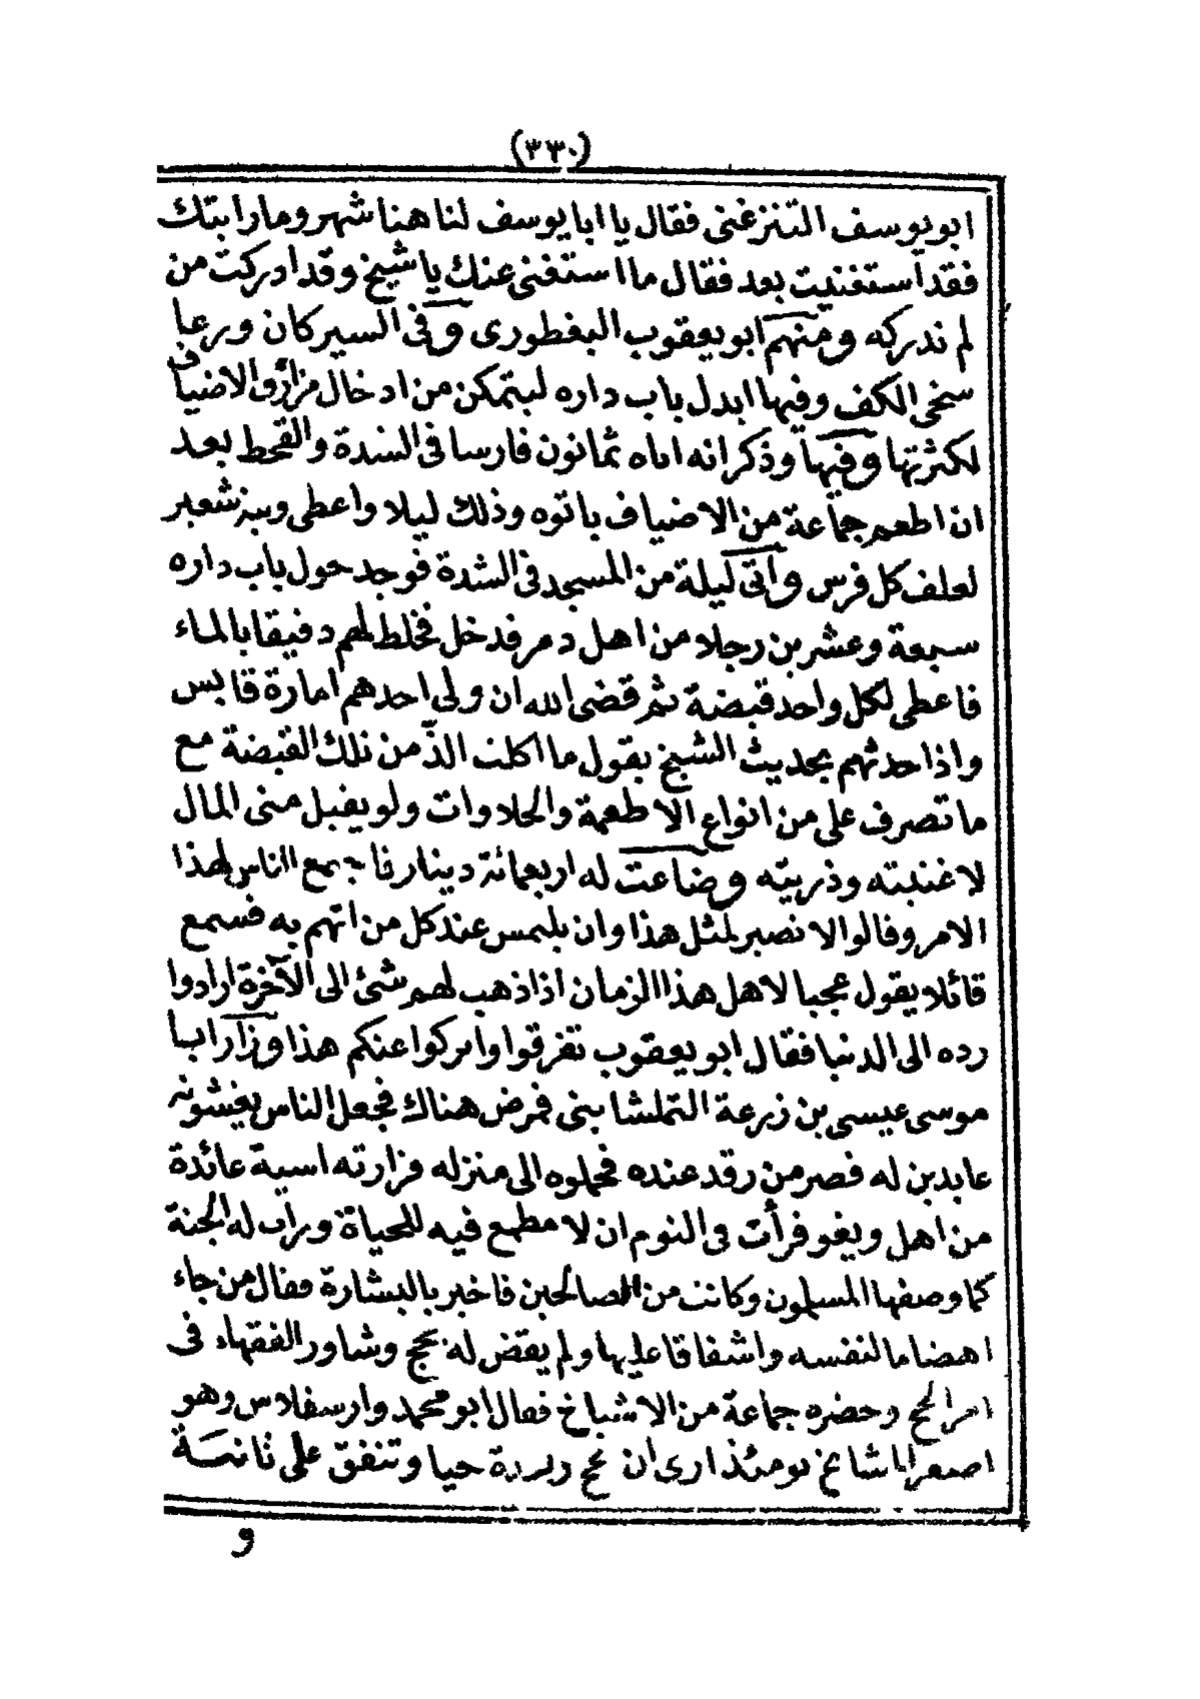 (٣٣٠)
ابو يوسف التنزغتى فقال يا ابا يوسف لنا هنا شهر وما رايتك
فقد استغنيت بعد فقال ما استغنى عنك يا شيخ وقد ادركت من
لم ندركه ومنهم ابو يعقوب البغطورى وفى السير كان ورعا
سخى الكف وفيها ابدل باب داره ليتمكن من ادخال مزاود الاضياف
لكثرتها وفيها وذكر انه اتاه ثمانون فارسا فى الشدة والقحط بعد
ان اطعم جماعة من الاضياف باتوه وذلك ليلا واعطى ويبة شعير
لعلف كل فرس وأتى ليلة من المسجد فى الشدة فوجد حول باب داره
سبعة وعشرين رجلا من اهل دمر فدخل فخلط لهم دقيقا بالماء
فاعطى لكل واحد قبضة ثم قضى الله ان ولى احدهم امارة قابس
واذا حدثهم بحديث الشيخ يقول ما اكلت الذ من تلك القبضة مع
ما تصرف على من انواع الاطعمة والحلاوات ولو يقبل منى المال
لاغنيته وذريته وضاعت له اربعمائة دينار فاجتمع الناس لهذا
الامر وقالوا لا نصبر لمثل هذا وان يلتمس عند كل من اتهم به فسمع
قائلا يقول عجبا لاهل هذا الزمان اذا ذهب لهم شئ الى الآخرة ارادوا
رده الى الدنيا فقال ابو يعقوب تفرقوا واتركوا عنكم هذا وزار ابا
موسى عيسى بن زرعة التملشايتى فمرض هناك فجعل الناس يغشونه
عايدين له فصر من رقد عنده فحملوه الى منزله فزارته اسية عائدة
من اهل ويغو فرأت فى النوم ان لا مطمع فيه للحياة ورأت له الجنة
كما وصفها المسلمون وكانت من الصالحين فاخبر بالبشارة فقال من جاء
اهضاما لنفسه واشفاقا عليها ولم يقض له بحج وشاور الفقهاء فى
امر الحج وحضره جماعة من الاشياخ فقال ابو محمد وارسفلاس وهو
اصغر المشايخ يومئذ ارى ان تحج زيردة حيا وتنفق على ثانسة
و